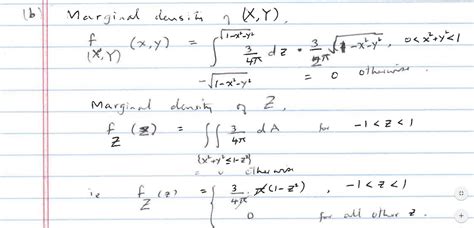 (b) Marginal density of (X,Y),
f_(X,Y) (x,y) = ∫_{-√(1-x²-y²)}^{√(1-x²-y²)} 3/4π dz = 3/2π √(1-x²-y²), 0<x²+y²<1
= 0 otherwise.
Marginal density of Z,
f_Z (z) = ∫∫_{x²+y²≤1-z²} 3/4π dA for -1<z<1
0 otherwise
ie f_Z (z) = { 3/4π · π(1-z²) , -1<z<1
0 for all other z.